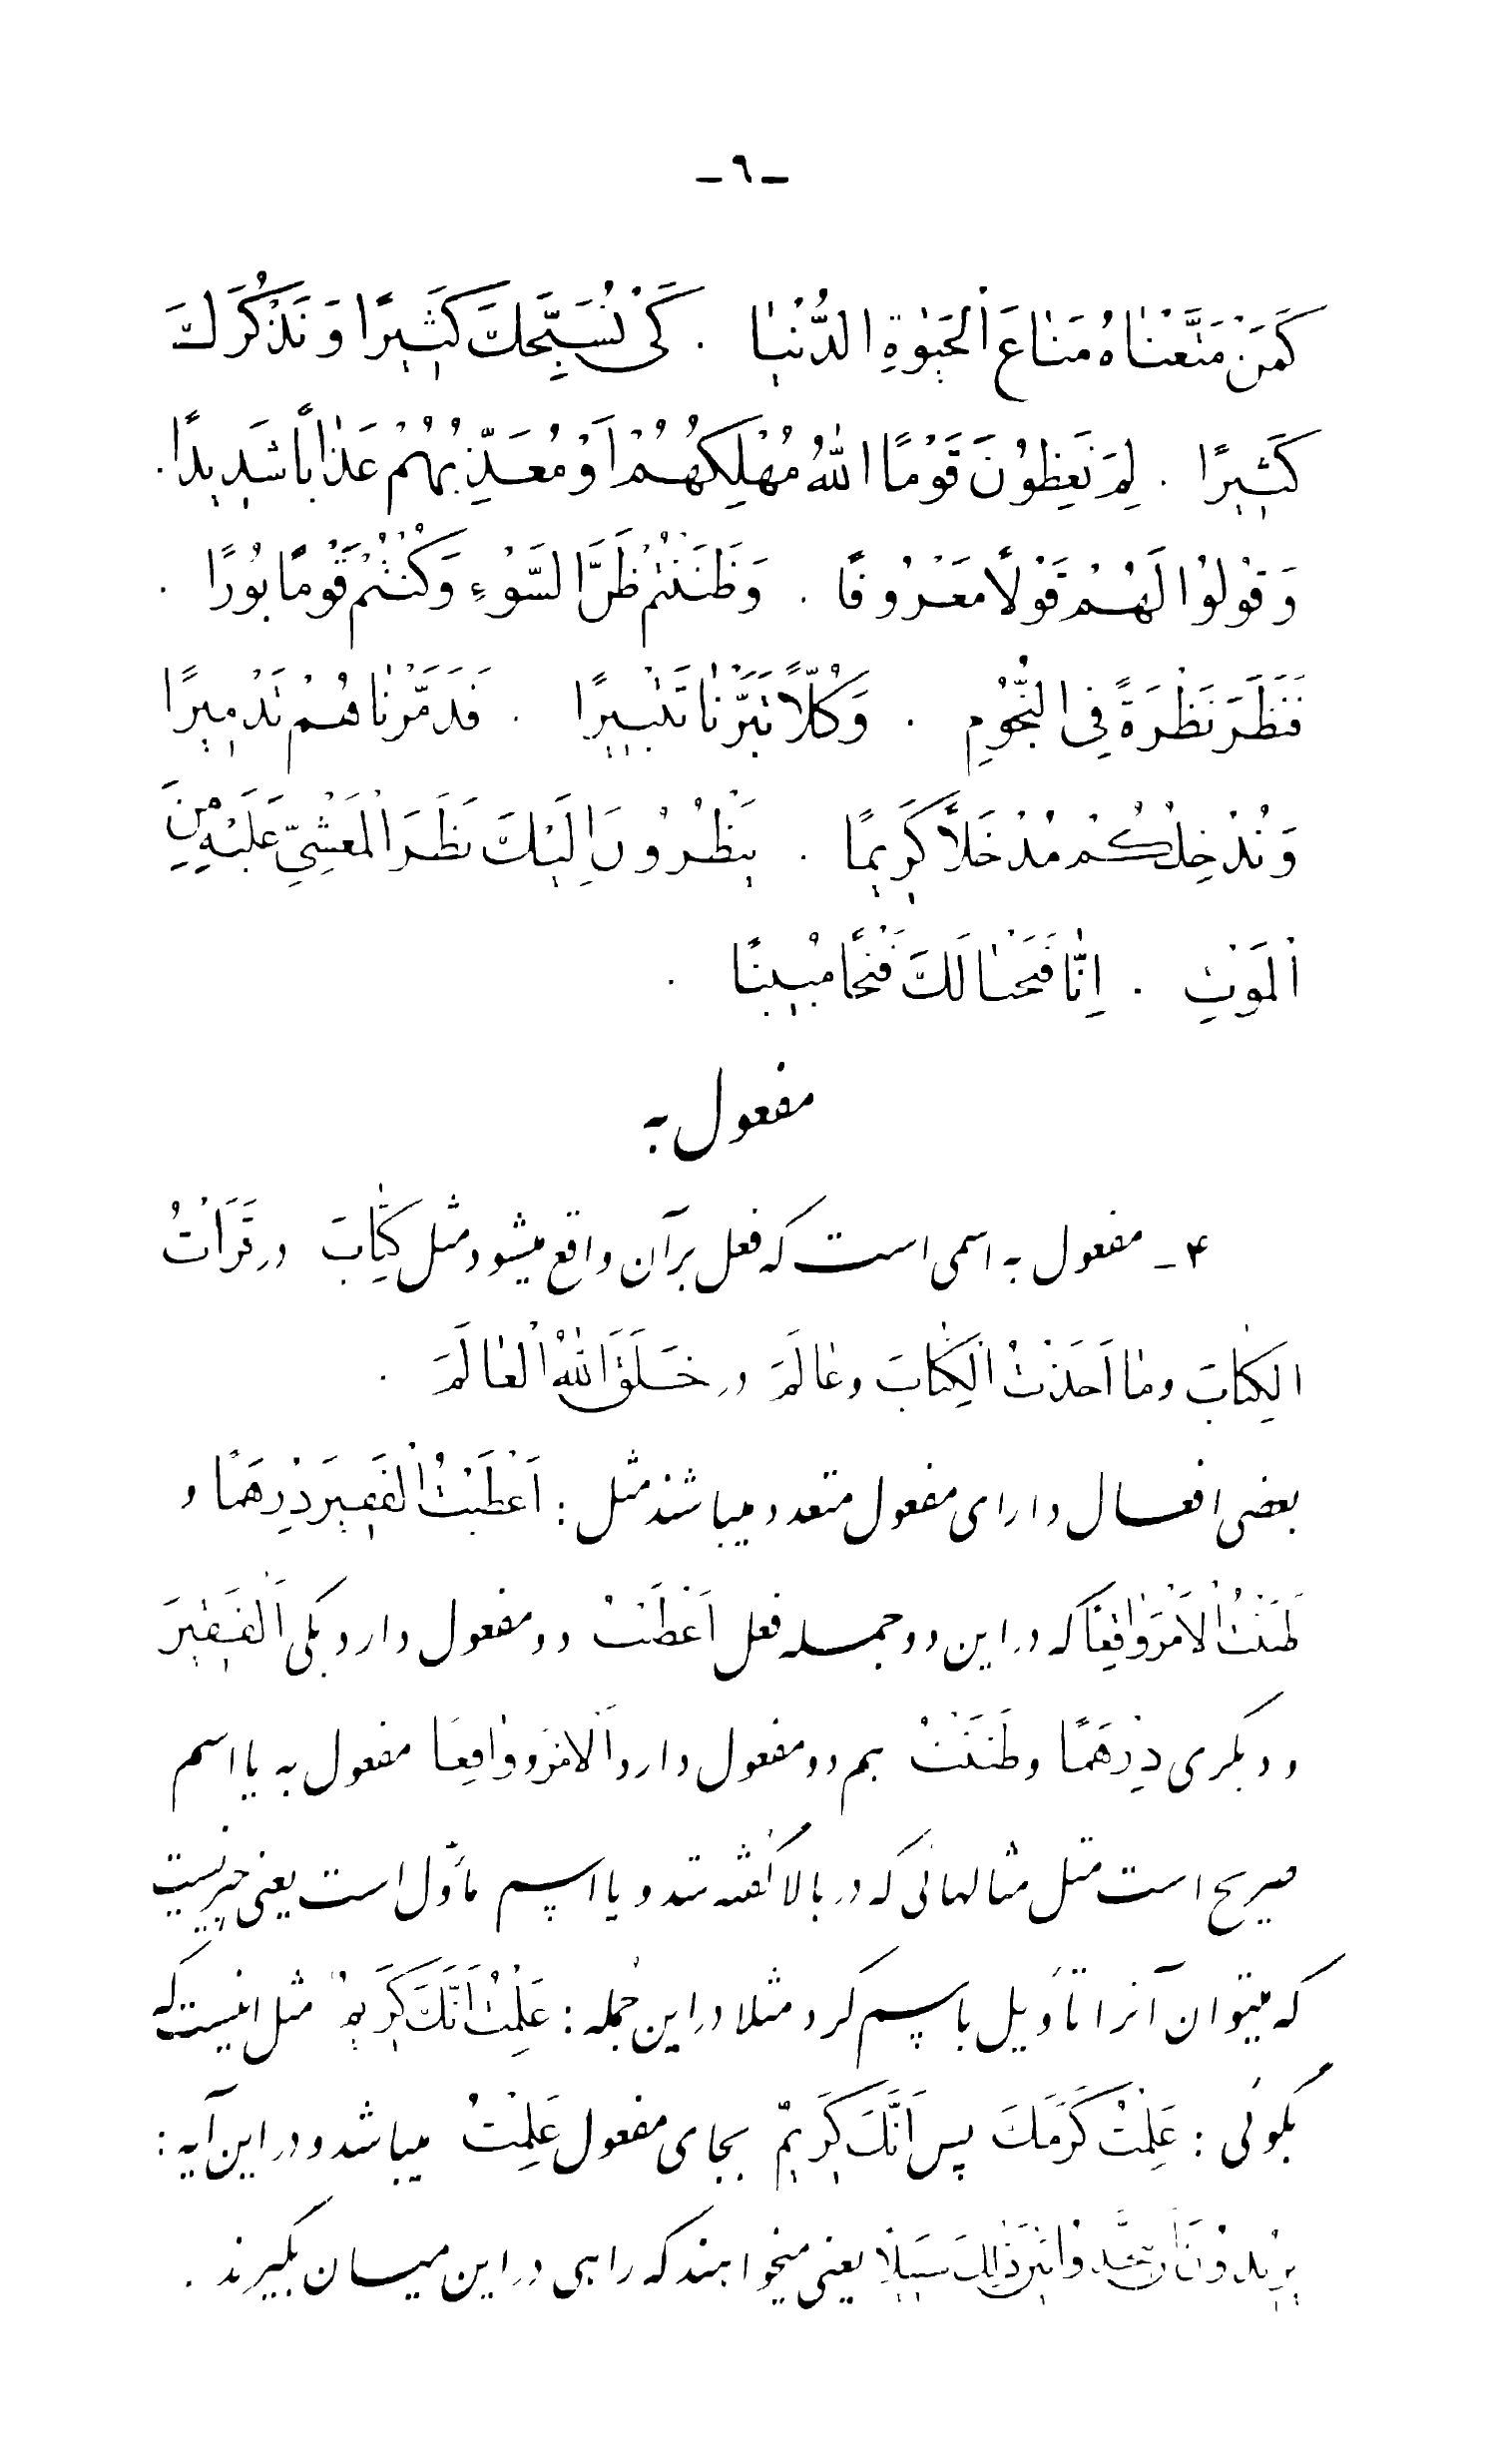 ـ٦ـ
كَمَنْ مَتَّعْنٰاهُ مَتٰاعَ الْحَيٰوةِ الدُّنْيٰا . كَیْ نُسَبِّحَكَ كَثِيرًا وَ نَذْكُرَكَ
كَثِيرًا . لِمَ تَعِظُونَ قَوْمًا اللّٰهُ مُهْلِكُهُمْ اَوْ مُعَذِّبُهُمْ عَذٰابًا شَدِيدًا .
وَ قُولُوْا لَهُمْ قَوْلًا مَعْرُوفًا . وَ ظَنَنْتُمْ ظَنَّ السَّوْءِ وَ كُنْتُمْ قَوْمًا بُورًا .
فَنَظَرَ نَظْرَةً فِی النُّجُوْمِ . وَ كُلًّا تَبَّرْنٰا تَتْبِيرًا . فَدَمَّرْنٰاهُمْ تَدْمِيرًا
وَ نُدْخِلْكُمْ مُدْخَلًا كَرِيمًا . يَنْظُرُونَ اِلَيْكَ نَظَرَ الْمَغْشِیِّ عَلَيْهِ مِنَ
الْمَوْتِ . اِنّٰا فَتَحْنٰا لَكَ فَتْحًا مُبِينًا .
مفعول به
۴ـ مفعول به اسمی است که فعل بر آن واقع میشود مثل كِتٰابَ در قَرَأْتُ
الكِتٰابَ و مٰا اَخَذْتُ الْكِتٰابَ و عٰالَمَ در خَلَقَ اللّٰهُ الْعٰالَمَ .
بعضی افعال دارای مفعول متعدد میباشند مثل : اَعْطَيْتُ الْفَقِيرَ دِرْهَمًا و
ظَنَنْتُ الْاَمْرَ وٰاقِعًا که در این دو جمله فعل اَعْطَيْتُ دو مفعول دارد یکی اَلْفَقِيرَ
و دیگری دِرْهَمًا و ظَنَنْتُ هم دو مفعول دارد اَلْاَمْرَ و وٰاقِعًا مفعول به یا اسم
صریح است مثل مثالهائی که در بالا گفته شد و یا اسم مأوّل است یعنی چیزیست
که میتوان آنرا تأویل باسم کرد مثلا در این جمله : عَلِمْتُ اَنَّكَ كَرِيمٌ مثل اینست که
بگوئی : عَلِمْتُ كَرَمَكَ پس اَنَّكَ كَرِيمٌ بجای مفعول عَلِمْتُ میباشد و در این آیه :
يُرِيدُوْنَ اَنْ يَتَّخِذُوا بَيْنَ ذٰلِكَ سَبِيلًا یعنی میخواهند که راهی در این میان بگیرند .